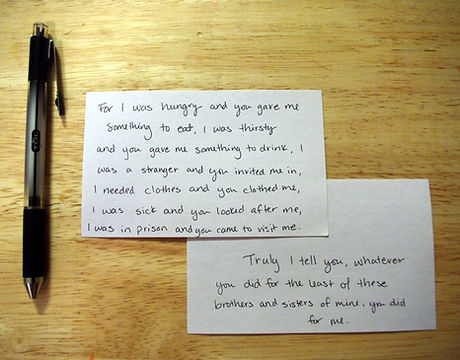 For I was hungry and you gave me
something to eat, I was thirsty
and you gave me something to drink, I
was a stranger and you invited me in,
I needed clothes and you clothed me,
I was sick and you looked after me,
I was in prison and you came to visit me.
Truly I tell you, whatever
you did for the least of these
brothers and sisters of mine, you did
for me.